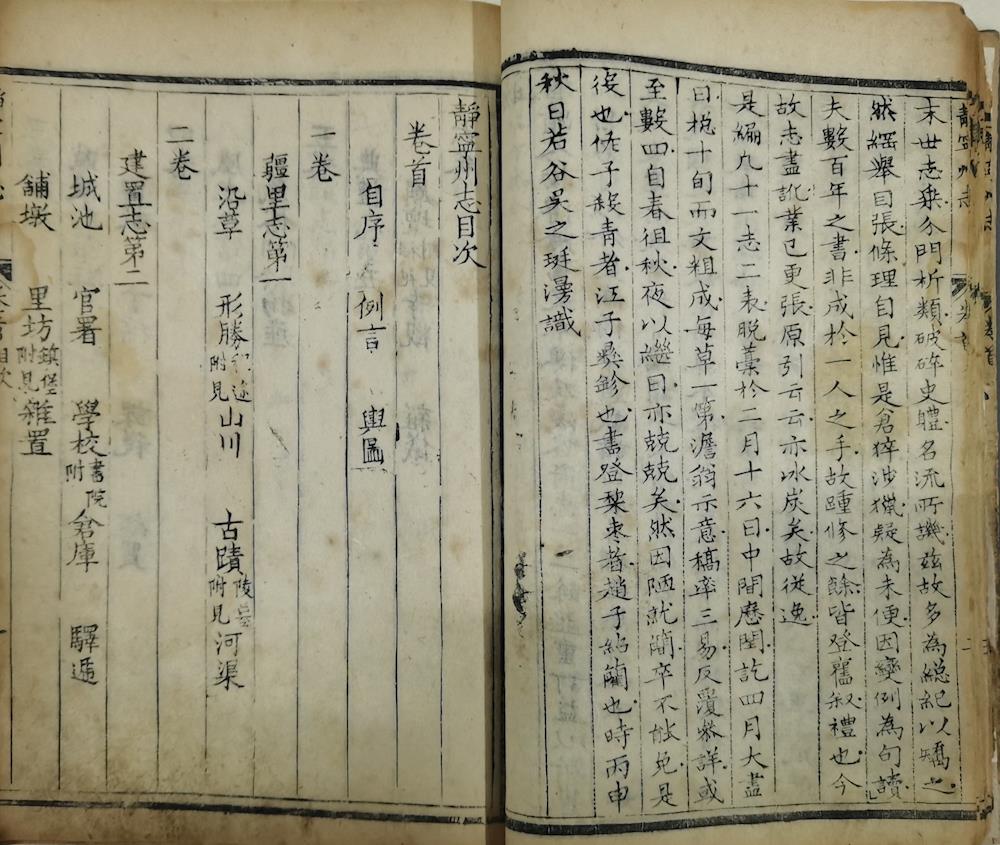 靜寧州志
末世志乘分門析類破碎史體名流所譏茲故多為總紀以矯之
然綱舉目張條理自見惟是倉猝涉獵疑為未便因變例為句讀
夫數百年之書非成於一人之手故踵修之餘皆登舊叙禮也今
故志盡訛業已更張原引云云亦冰炭矣故從逸
是編九十一志二表脫藁於二月十六日中間歷閏訖四月大盡
日挽十旬而文粗成每草一第澹翁示意稿率三易反覆叅詳或
至數四自春徂秋夜以繼日亦兢兢矣然因陋就簡卒不能免是
後也佐子殺青者江子彞鉁也書登棃枣者趙子紹簡也時丙申
秋日若谷吳之珽漫識
靜寧州志目次
卷首
自序 例言 輿圖
一卷
疆里志第一
沿革 形勝附見 山川 古蹟陵附見 河渠
二卷
建置志第二
城池 官署 學校書院附 倉庫 驛遞
舖墩 里坊鎮堡附見 雜置
目次